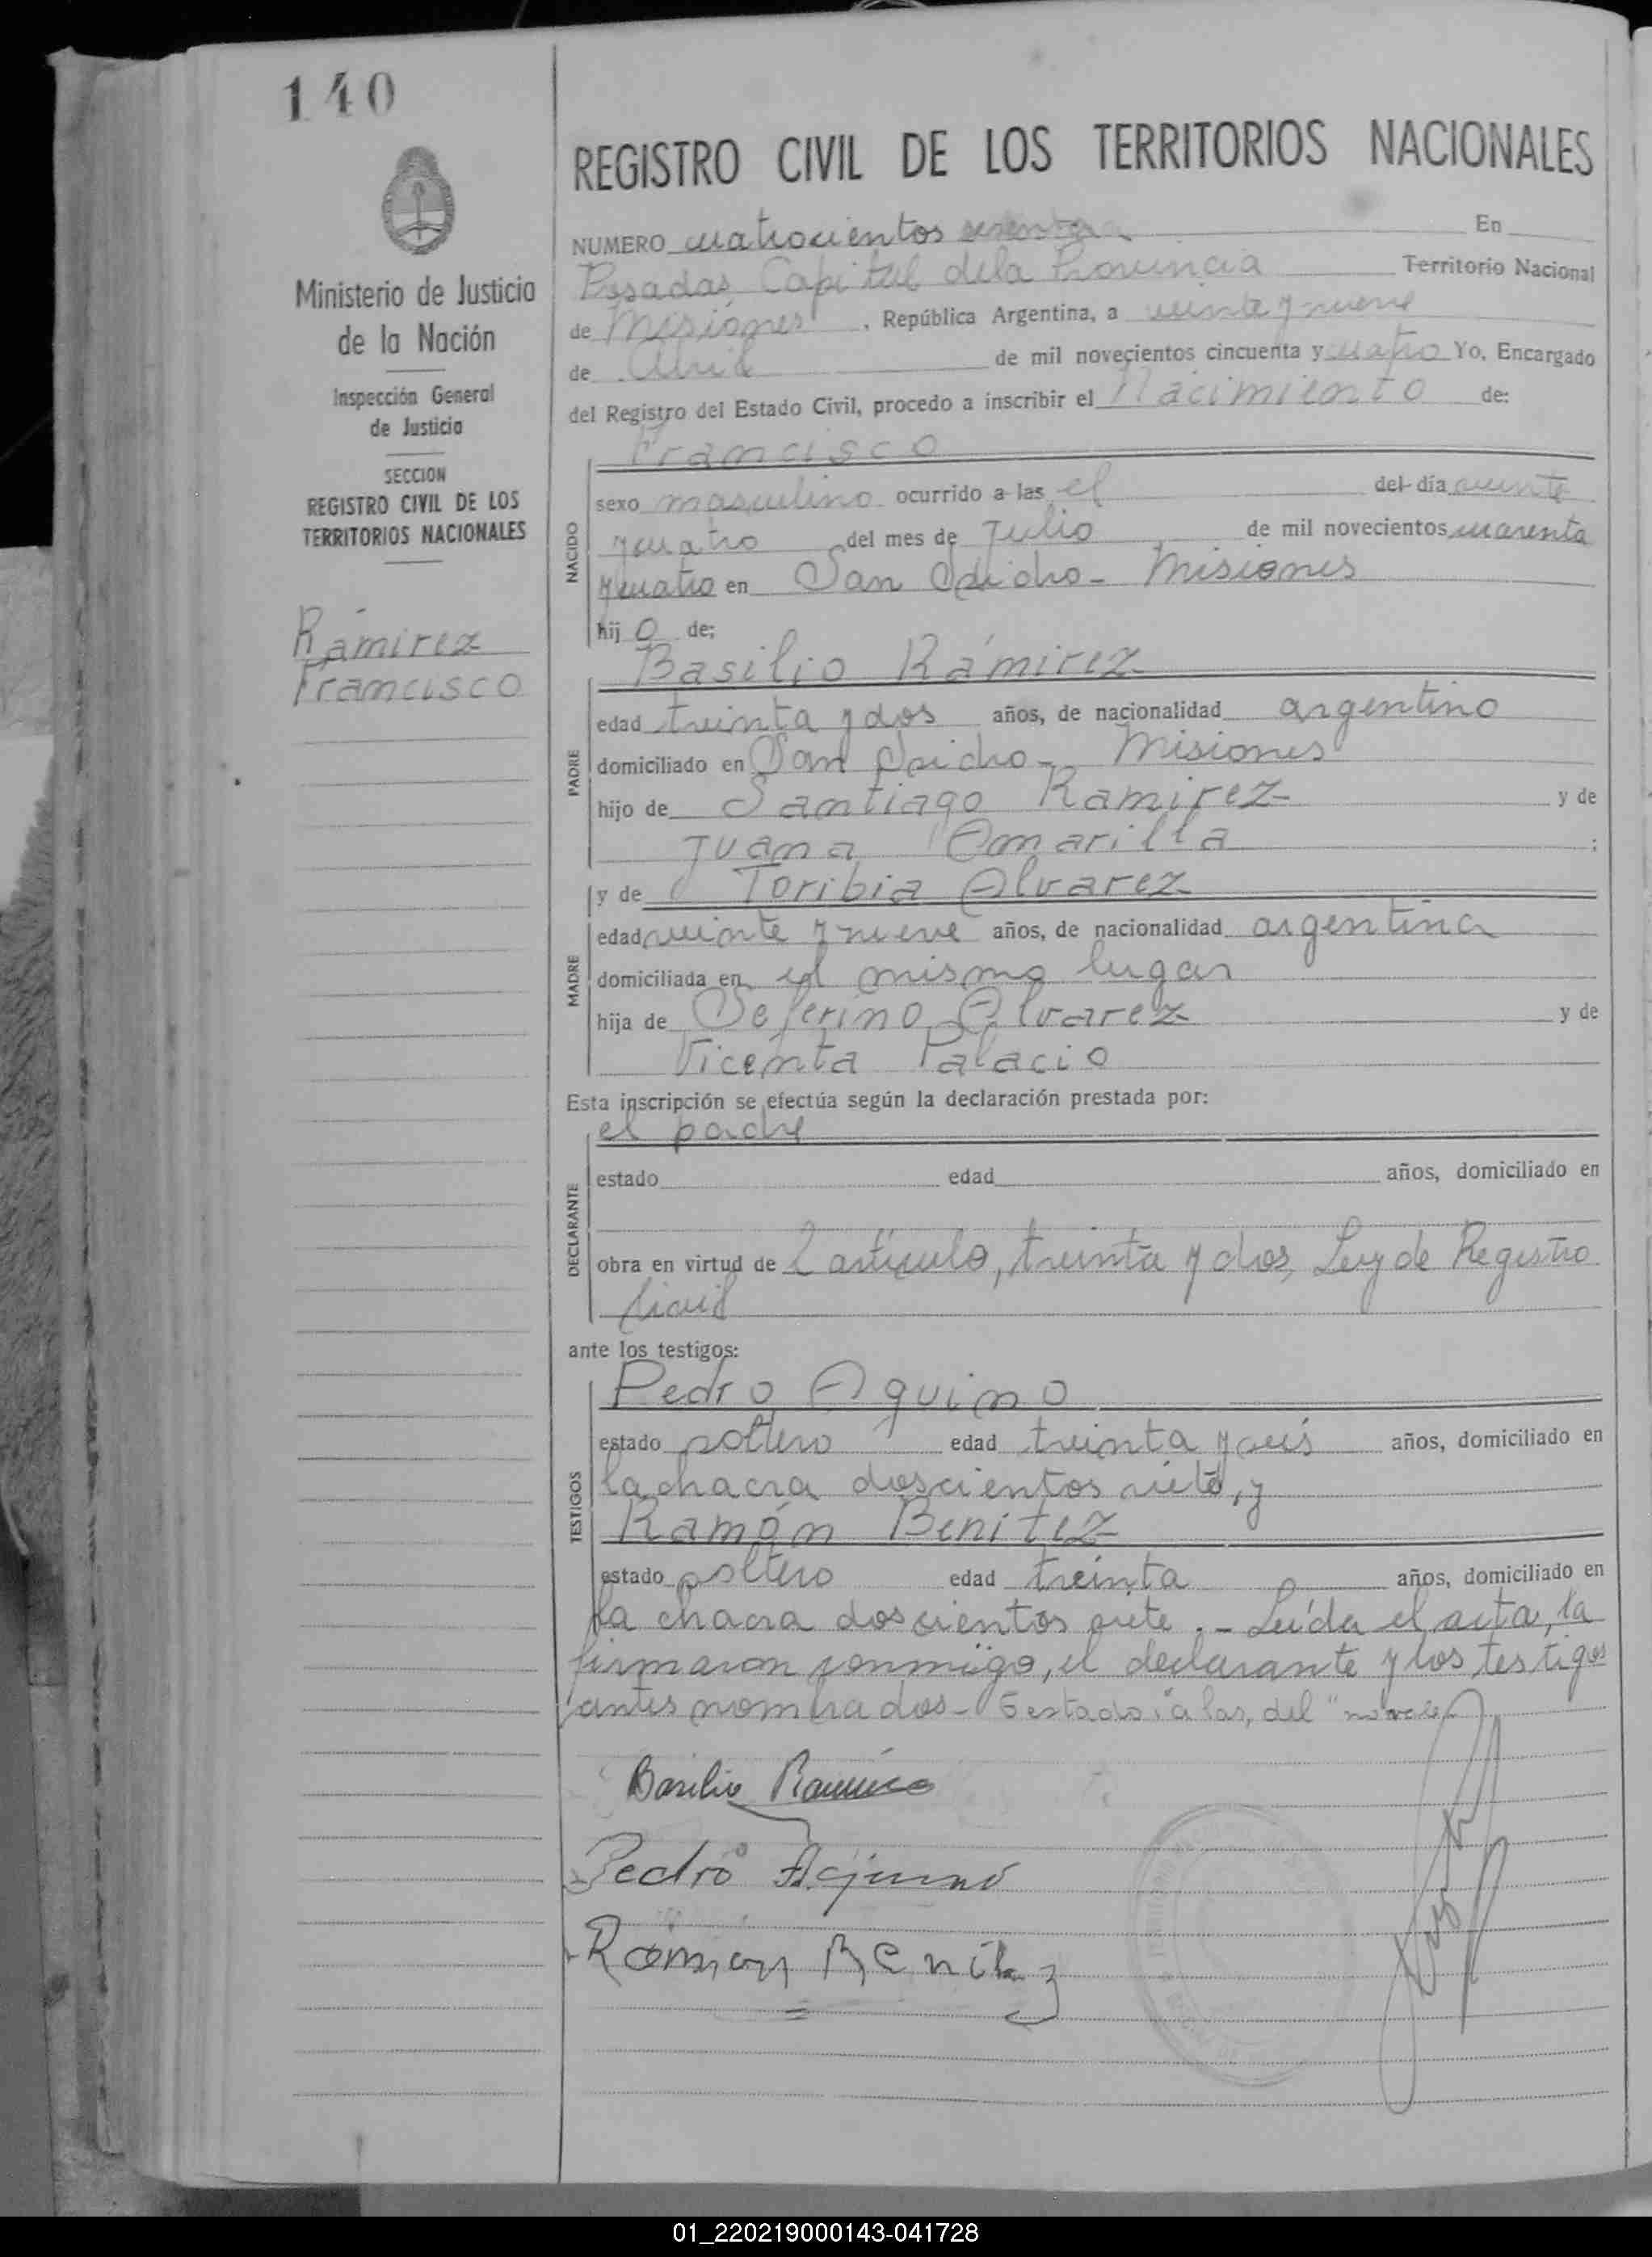 140
REGISTRO CIVIL DE LOS TERRITORIOS NACIONALES
NUMERO cuatrocientos sesenta En
Posadas, Capital de la Provincia Territorio Nacional
de Misiones, República Argentina, a veinte y nueve
de Abril de mil novecientos cincuenta y cuatro Yo, Encargado
del Registro del Estado Civil, procedo a inscribir el Nacimiento de:
Ministerio de Justicia
de la Nación
Inspección General
de Justicia
SECCION
REGISTRO CIVIL DE LOS
TERRITORIOS NACIONALES
Ramirez
Francisco
NACIDO
Francisco
sexo masculino ocurrido a las el del día veinte
y cuatro del mes de Julio de mil novecientos cuarenta
y cuatro en San Isidro - Misiones
hij o de;
Basilio Ramirez
PADRE
edad treinta y dos años, de nacionalidad argentino
domiciliado en San Isidro - Misiones
hijo de Santiago Ramirez y de
Juana Amarilla ;
y de Toribia Alvarez
MADRE
edad veinte y nueve años, de nacionalidad argentina
domiciliada en el mismo lugar
hija de Seferino Alvarez y de
Vicenta Palacio
Esta inscripción se efectúa según la declaración prestada por:
el padre
DECLARANTE
estado edad años, domiciliado en
obra en virtud de l artículo, treinta y dos, Ley de Registro
Civil
ante los testigos:
Pedro Aquino
TESTIGOS
estado soltero edad treinta y seis años, domiciliado en
la chacra doscientos siete, y
Ramón Benitez
estado soltero edad treinta años, domiciliado en
la chacra doscientos siete.- Leída el acta, la
firmaron conmigo, el declarante y los testigos
antes nombrados - Testado: "a las, del" no vale
Basilio Ramirez
Pedro Aquino
Ramon Benitez
01_220219000143-041728